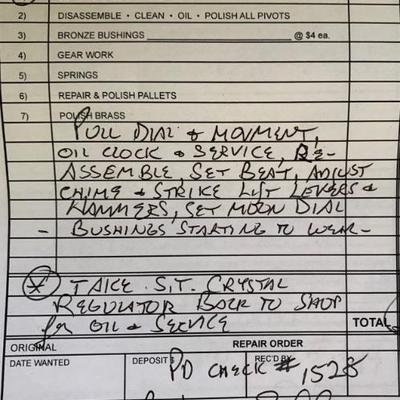 2) DISASSEMBLE • CLEAN • OIL • POLISH ALL PIVOTS
3) BRONZE BUSHINGS ____________________ @ $4 ea.
4) GEAR WORK
5) SPRINGS
6) REPAIR & POLISH PALLETS
7) POLISH BRASS
PULL DIAL & MOVMENT,
OIL CLOCK & SERVICE, RE-
ASSEMBLE, SET BEAT, ADJUST
CHIME & STRIKE LIFT LEVERS &
HAMMERS, SET MOON DIAL
- BUSHINGS STARTING TO WEAR -
* TAKE S.T. CRYSTAL
REGULATOR BACK TO SHOP
for OIL & SERVICE
TOTAL
ORIGINAL REPAIR ORDER
DATE WANTED DEPOSIT $ REC'D BY
PD CHECK # 1528